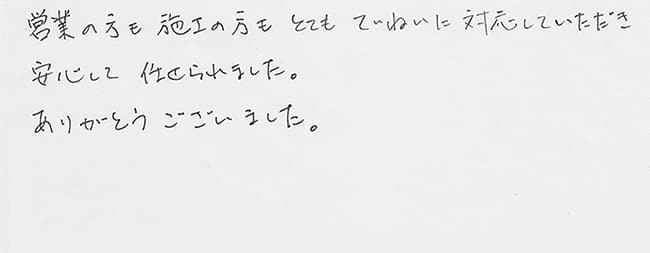 営業の方も 施工の方も とても ていねいに 対応していただき
安心して 任せられました。
ありがとう ございました。